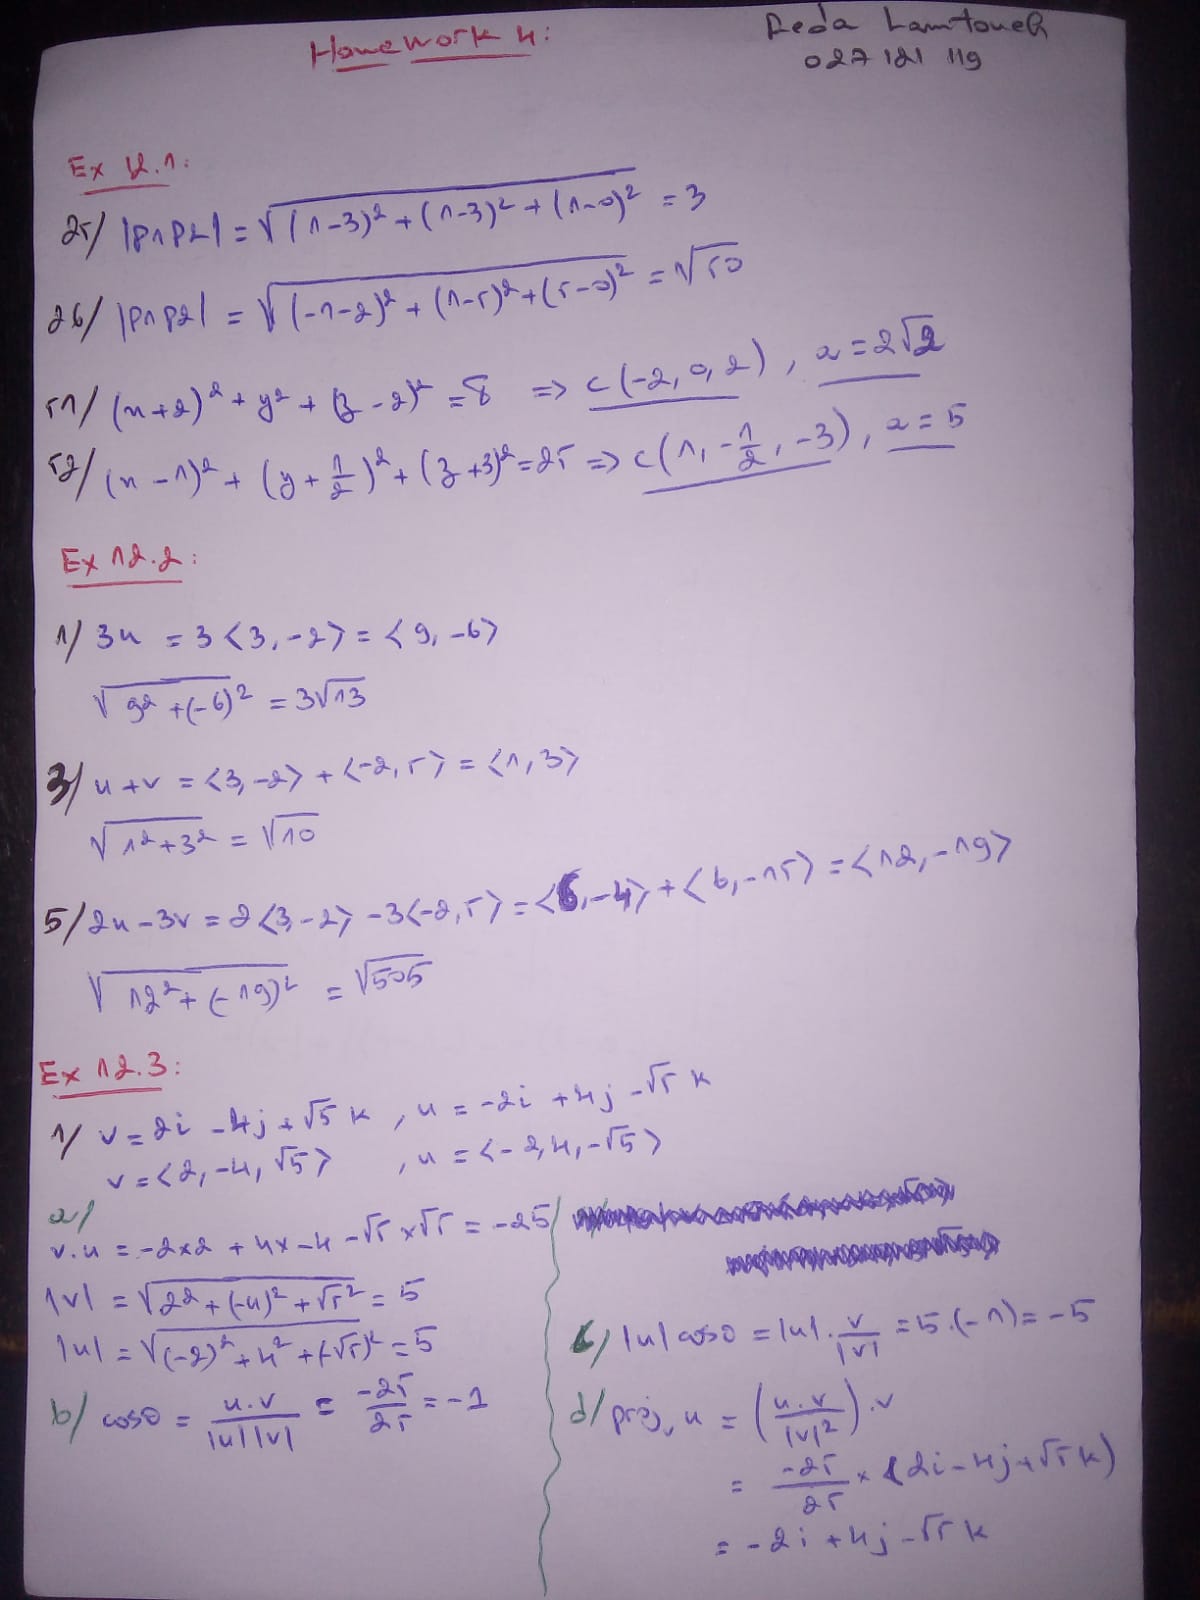 Homework 4:
Reda Lamtoueh
027121 119
Ex 12.1:
25/ |P1P2| = √((1-3)² + (1-3)² + (1-0)²) = 3
26/ |P1P2| = √((-1-2)² + (1-5)² + (5-0)²) = √50
51/ (x+2)² + y² + (z-2)² = 8 => C(-2,0,2), a = 2√2
52/ (x-1)² + (y+1/2)² + (z+3)² = 25 => C(1, -1/2, -3), a = 5
Ex 12.2:
1/ 3u = 3<3,-2> = <9,-6>
√(9²+(-6)²) = 3√13
3/ u+v = <3,-2> + <-2,5> = <1,3>
√(1²+3²) = √10
5/ 2u-3v = 2<3,-2> -3<-2,5> = <6,-4> + <6,-15> = <12,-19>
√(12²+(-19)²) = √505
Ex 12.3:
1/ v = 2i - 4j + √5 k, u = -2i + 4j - √5 k
v = <2,-4,√5>, u = <-2,4,-√5>
a/
v.u = -2×2 + 4×-4 - √5×√5 = -25
|v| = √(2² + (-4)² + √5²) = 5
|u| = √((-2)² + 4² + (-√5)²) = 5
b/ cosθ = u.v/|u||v| = -25/25 = -1
c/ |u| cosθ = |u|.v/|v| = 5.(-1) = -5
d/ projᵥ u = (u.v/|v|²).v
= -25/25 × (2i - 4j + √5 k)
= -2i + 4j - √5 k